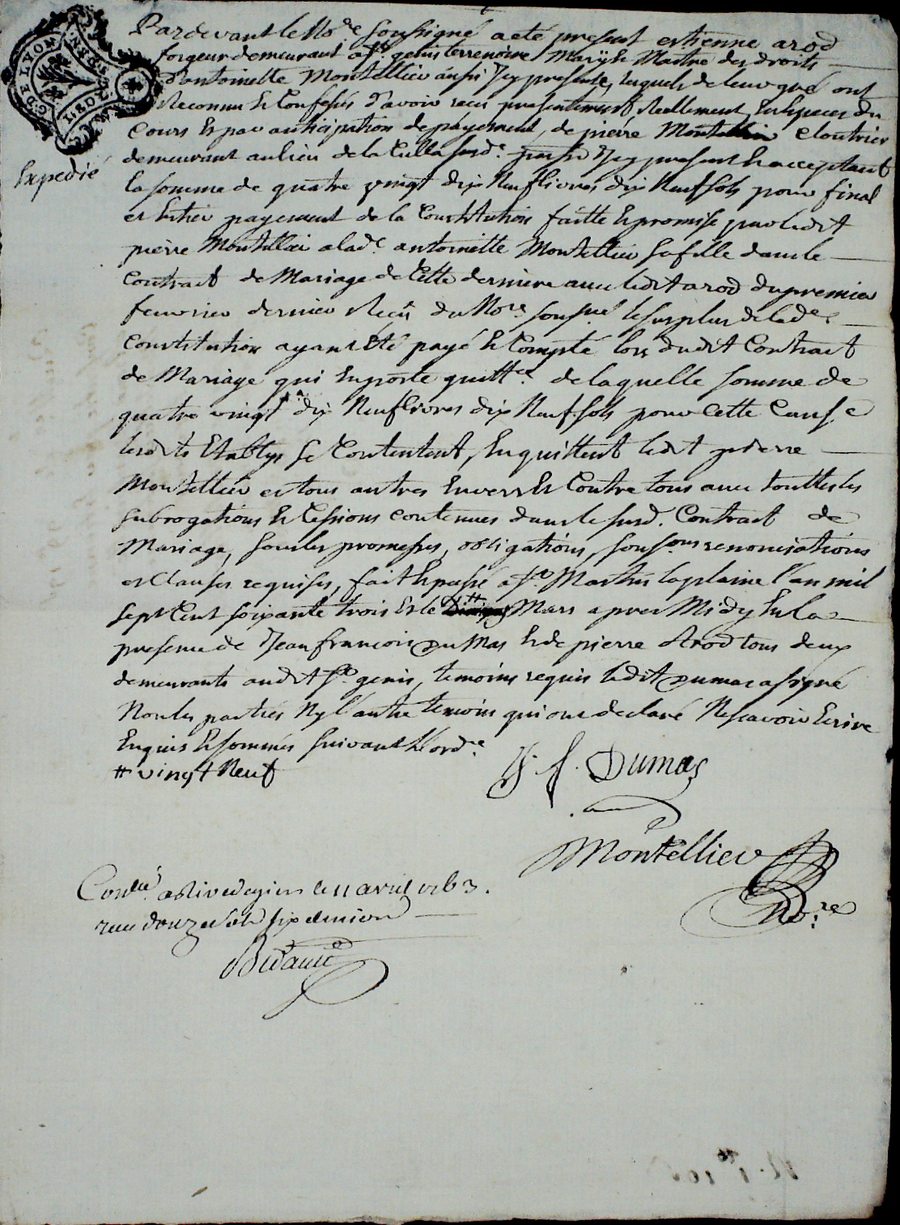 Pardevant le No.re Soussigné a eté present estienne arod
forgeur demeurant a S.t genis terrenoire Mary & Maitre des droits
d'antoinette Montellier aussi Icy presente, lequels de leur gré ont
Reconnu & Confessés d'avoir receu presentement Reellement, En Especes du
Cours & par anticipation de payement, de pierre Montellier Cloutier
Expedié
demeurant au lieu de la Culla susd.e parsse Icy present & acceptant
la somme de quatre vingt dix Neuf livres dix Neuf sols pour final
et Entier payement de la Constitution faitte & promise par ledit
pierre Montellier a lad.e antoinette Montellier sa fille dans le
Contract de Mariage de Cette derniere avec ledit arod du premier
fevrier dernier Receu du No.re Sousné. le surplus de lad.e
Constitution ayant Eté payé & Compté lors dudit Contract
de Mariage qui En porte quitt.ce de laquelle somme de
quatre vingt dix Neuf livres dix Neuf sols pour Cette Cause
lesdits Etablys Se Contentent, En quittent ledit pierre
Montellier et tous autres Envers & Contre tous avec touttes les
subrogations & Cessions contenues dans le susd. Contract de
Mariage, sous les promesses, obligations, soumons renonciations
et Clauses requises, fait & passé a S.t Martin la plaine l'an mil
sept Cent soixante trois & le # Mars apres Midy En la
presence de Jean francois Dumas & de pierre Arod tous deux
demeurants audit S.t genis, temoins requis ledit Dumas a signé
Non les parties Ny l'autre temoin qui ont declaré Ne scavoir Ecrire
Enquis & sommés suivant l'ord.ce
# vingt Neuf
J. f. Dumas
Montellier
No.re
Con.llé a Rivedegier le 11 avril 1763.
reçu douze sols six deniers
LYON